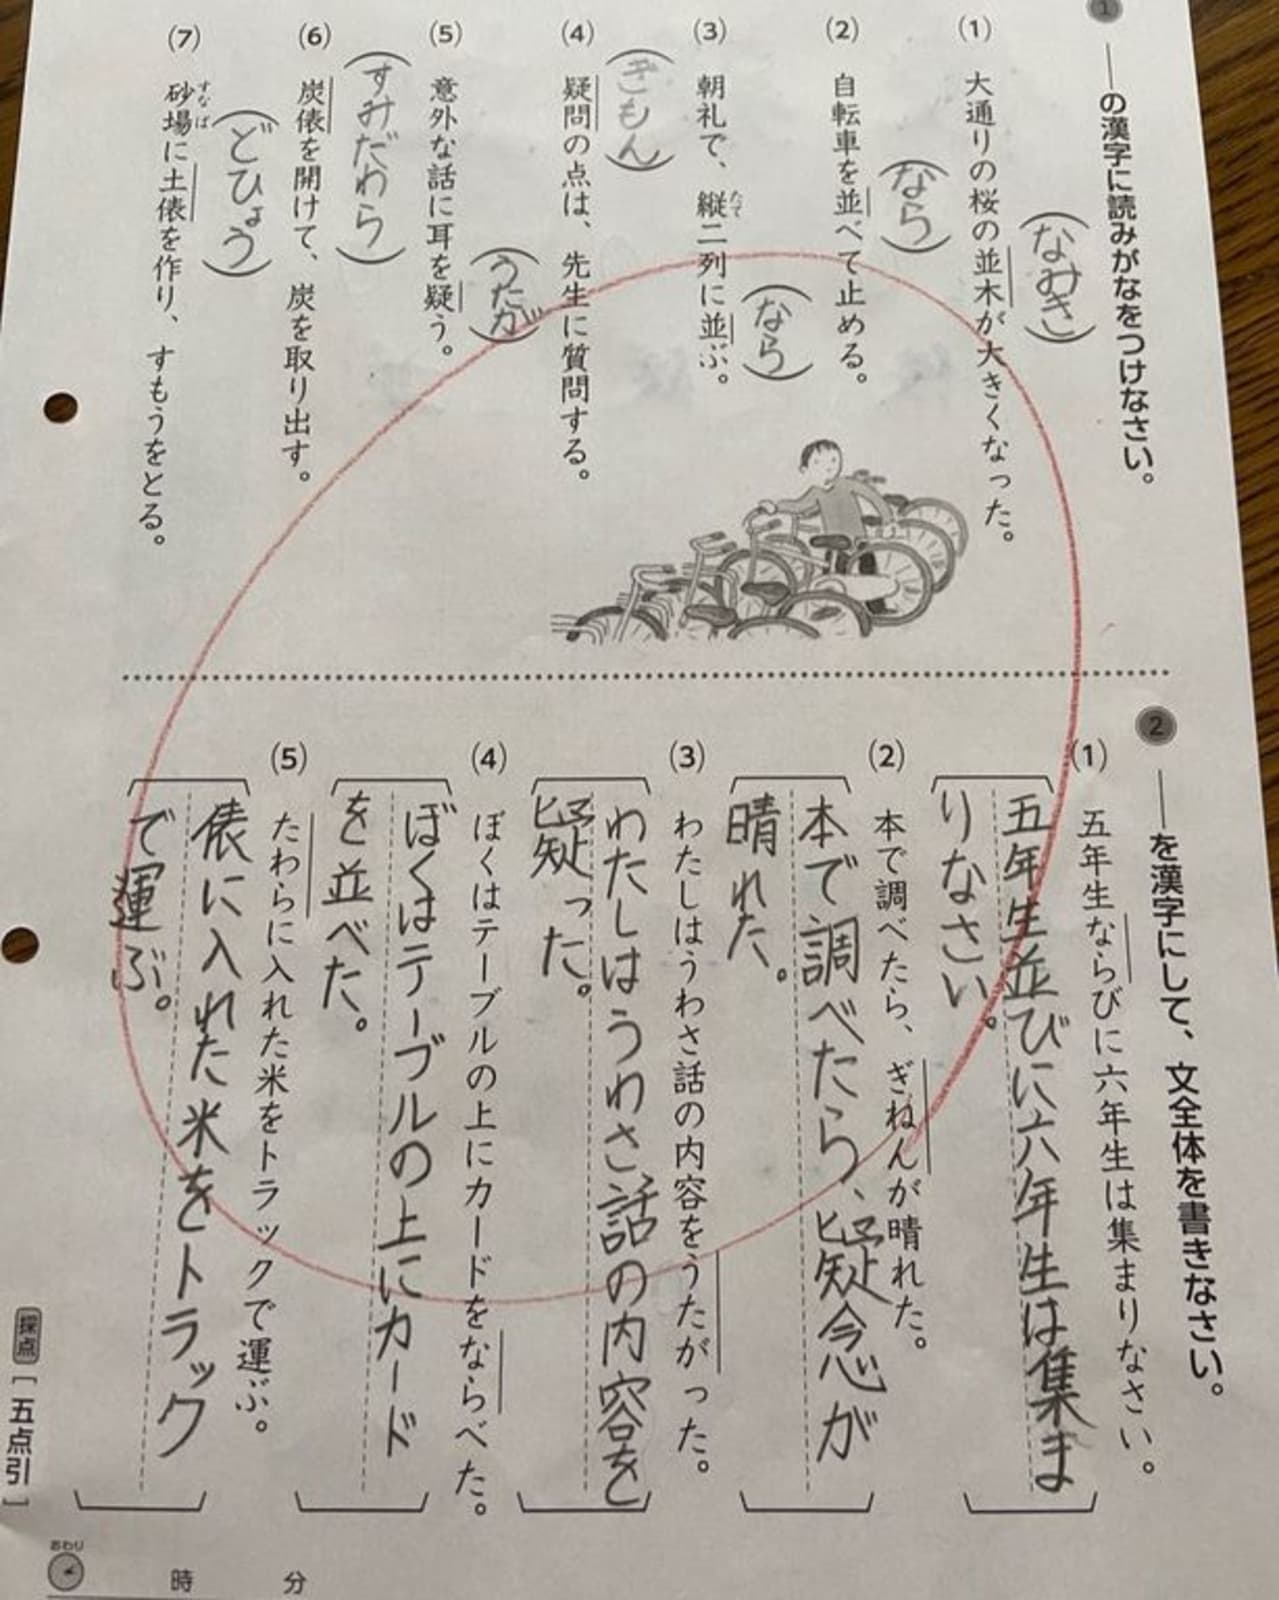 1
―の漢字に読みがなをつけなさい。
(1) 大通りの桜の並木が大きくなった。
(なみき)
(2) 自転車を並べて止める。
(なら)
(3) 朝礼で、縦二列に並ぶ。
たて
(なら)
(4) 疑問の点は、先生に質問する。
(ぎもん)
(5) 意外な話に耳を疑う。
(うたが)
(6) 炭俵を開けて、炭を取り出す。
(すみだわら)
(7) 砂場に土俵を作り、すもうをとる。
すなば
(どひょう)
2
―を漢字にして、文全体を書きなさい。
(1) 五年生ならびに六年生は集まりなさい。
五年生並びに六年生は集ま
りなさい。
(2) 本で調べたら、ぎねんが晴れた。
本で調べたら、疑念が
晴れた。
(3) わたしはうわさ話の内容をうたがった。
わたしはうわさ話の内容を
疑った。
(4) ぼくはテーブルの上にカードをならべた。
ぼくはテーブルの上にカード
を並べた。
(5) たわらに入れた米をトラックで運ぶ。
俵に入れた米をトラック
で運ぶ。
採点[五点引]
おわり
時 分